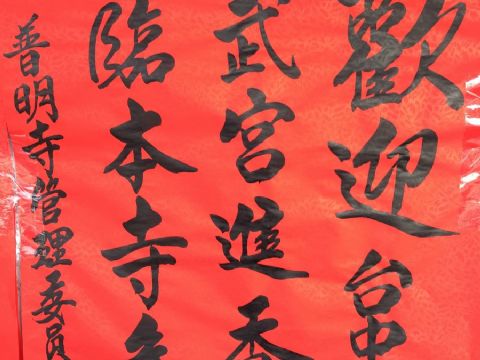 歡迎台中
武宮進香
臨本寺
普明寺管理委員